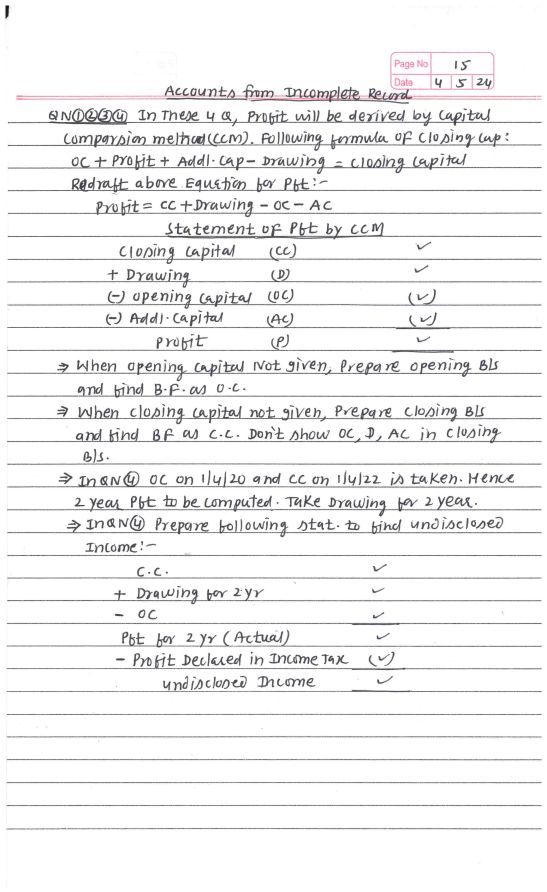 Page No 15
Date 4 5 24
Accounts from Incomplete Record
QN①②③④ In These 4 Q, Profit will be derived by Capital
Comparsion method (CCM). Following formula of Closing Cap:
OC + Profit + Addl. Cap - Drawing = Closing Capital
Redraft above Equstion for Pft:-
Profit = CC + Drawing - OC - AC
Statement of Pft by CCM
Closing Capital (CC) ✓
+ Drawing (D) ✓
(-) Opening Capital (OC) (✓)
(-) Addl. Capital (AC) (✓)
Profit (P) ✓
⇒ When opening capital Not given, Prepare opening B/s
and find B.F. as O.C.
⇒ When closing capital not given, Prepare closing B/s
and find BF as C.C. Don't show OC, D, AC in closing
B/s.
⇒ In QN④ OC on 1/4/20 and CC on 1/4/22 is taken. Hence
2 year Pft to be computed. Take Drawing for 2 year.
⇒ In QN④ Prepare following stat. to find undisclosed
Income:-
C.C. ✓
+ Drawing for 2 yr ✓
- OC ✓
Pft for 2 yr (Actual) ✓
- Profit Declared in Income Tax (✓)
undisclosed Income ✓